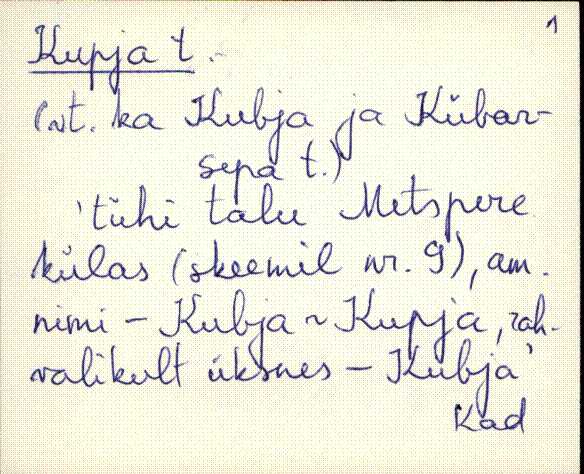 1
Kupja t.
(vt. ka Kubja ja Kübar-
sepa t.)
'tühi talu Metspere
külas (skeemil nr. 9), am.
nimi – Kubja ~ Kupja, rah-
valikult üksnes – Kubja'
Kad